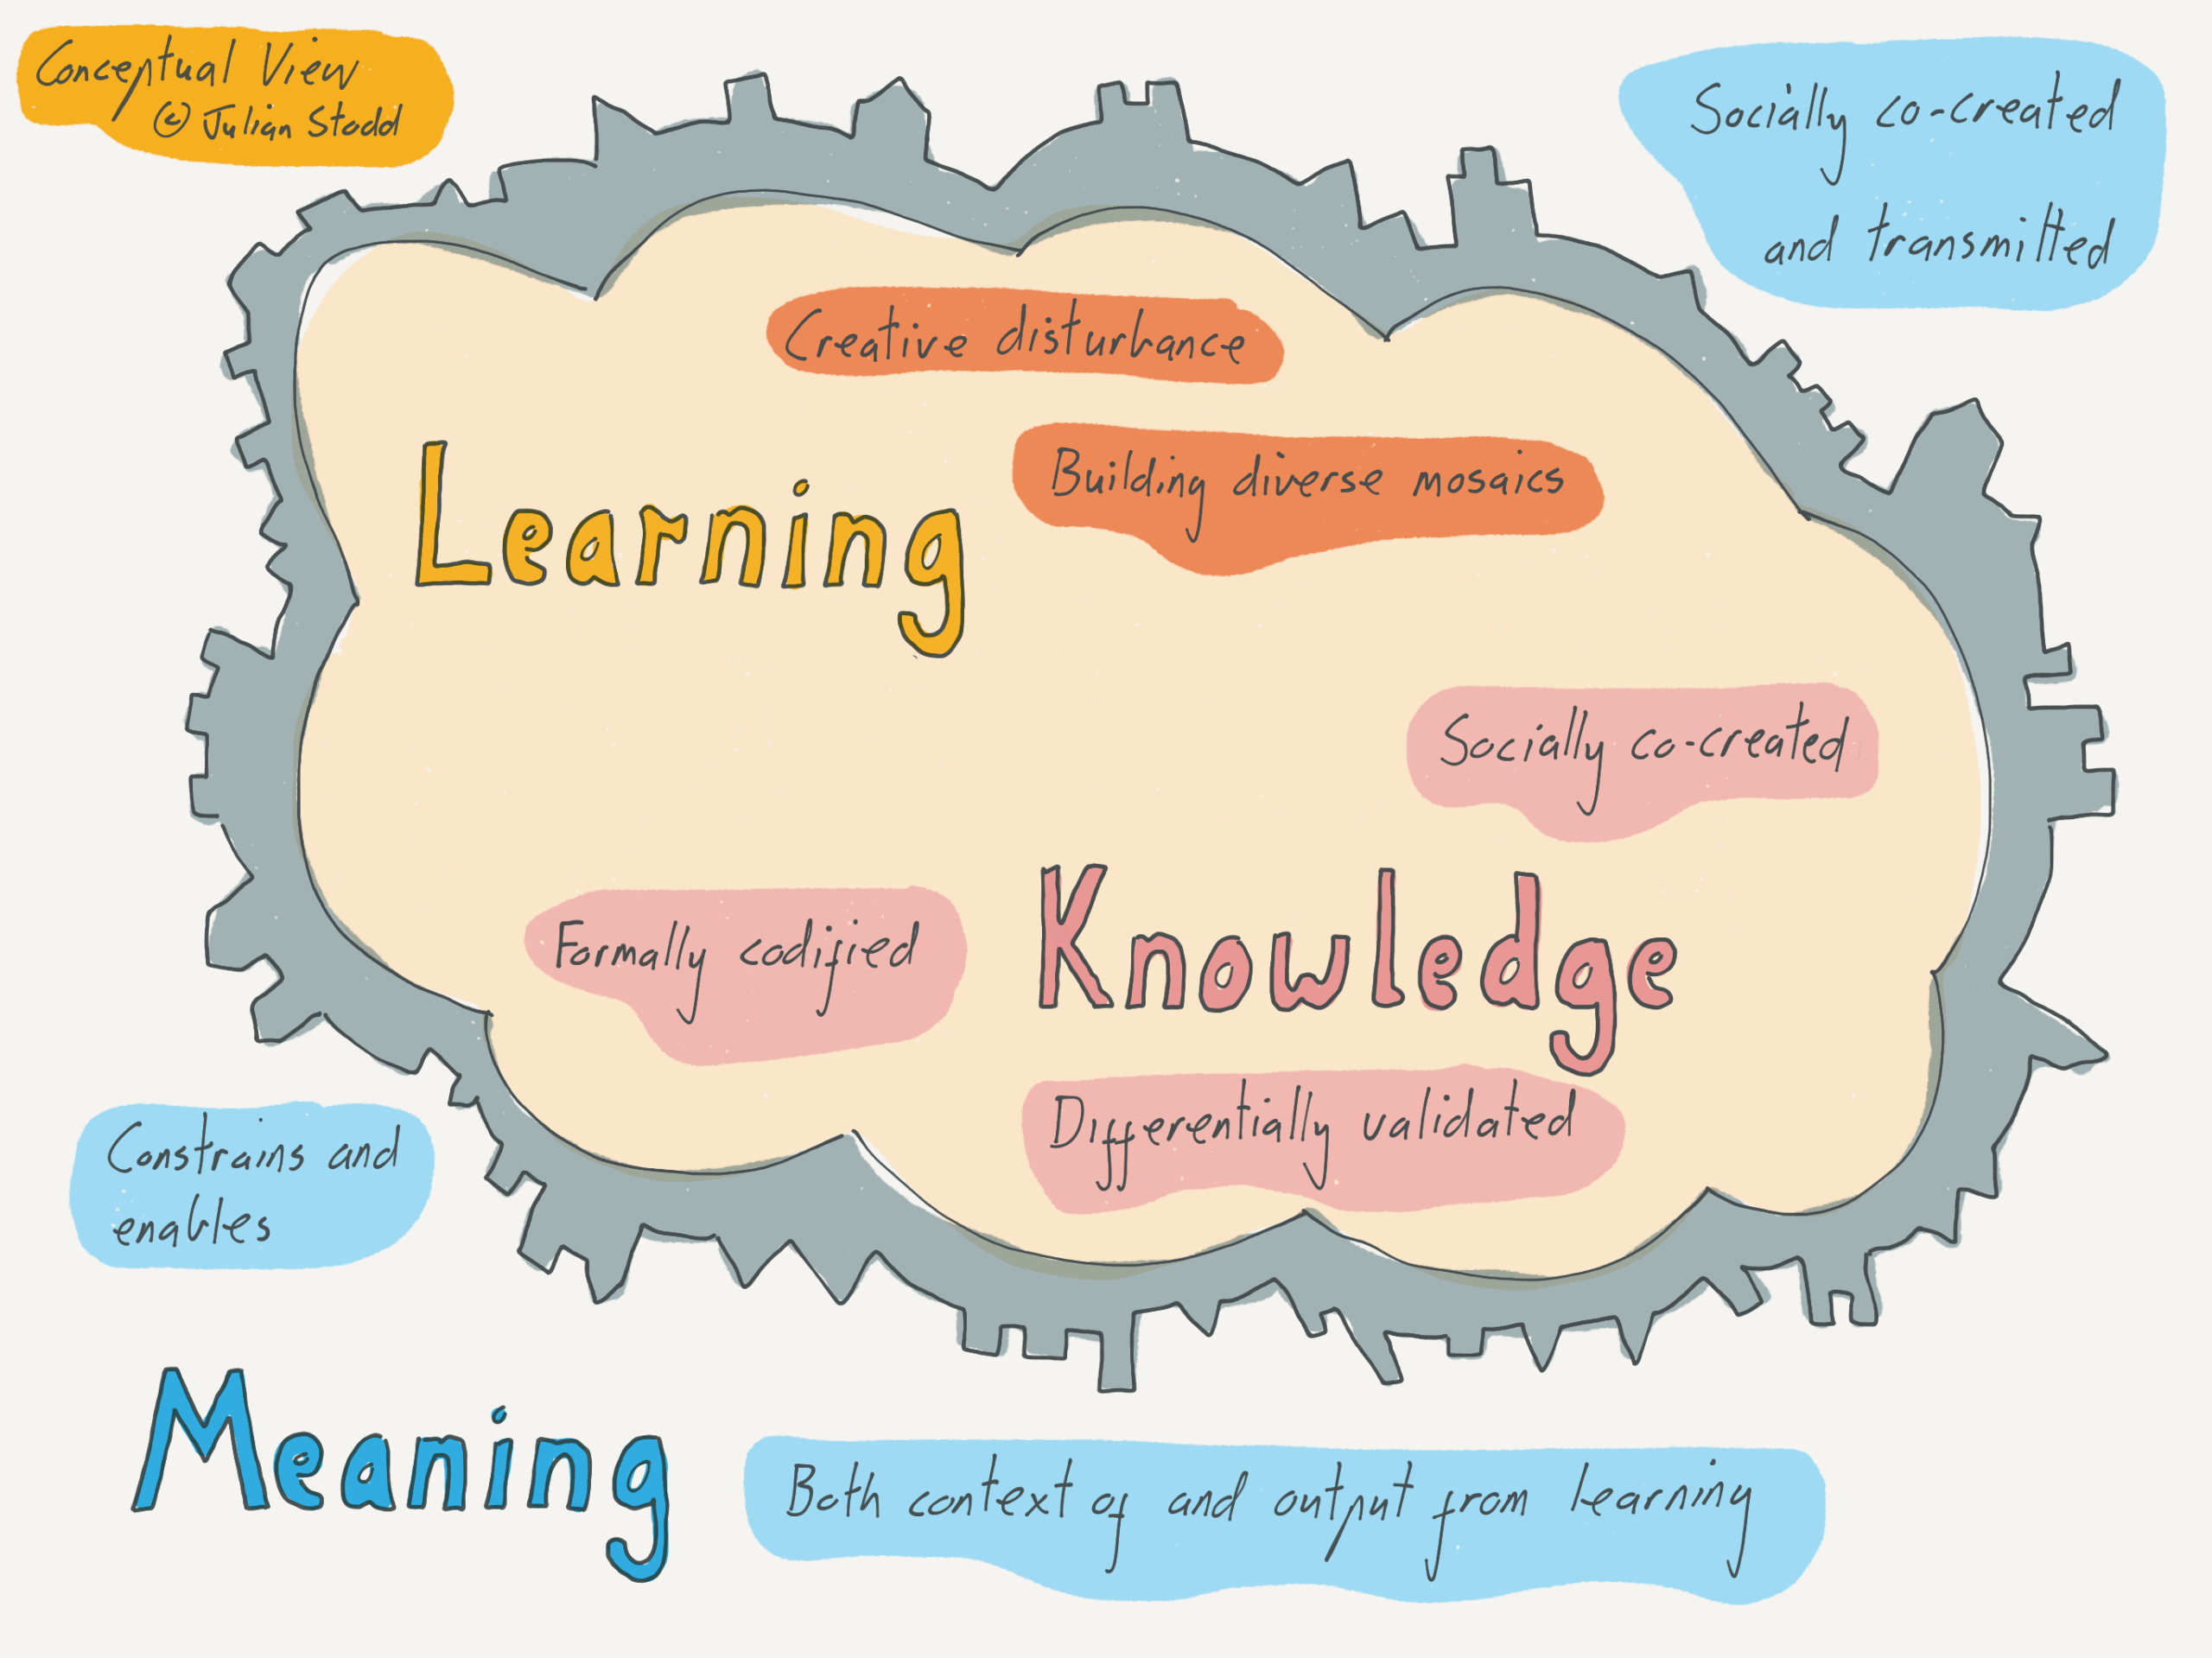 Conceptual View
© Julian Stodd
Socially co-created
and transmitted
Creative disturbance
Building diverse mosaics
Learning
Socially co-created
Formally codified
Knowledge
Differentially validated
Constrains and
enables
Meaning
Both context of and output from learning